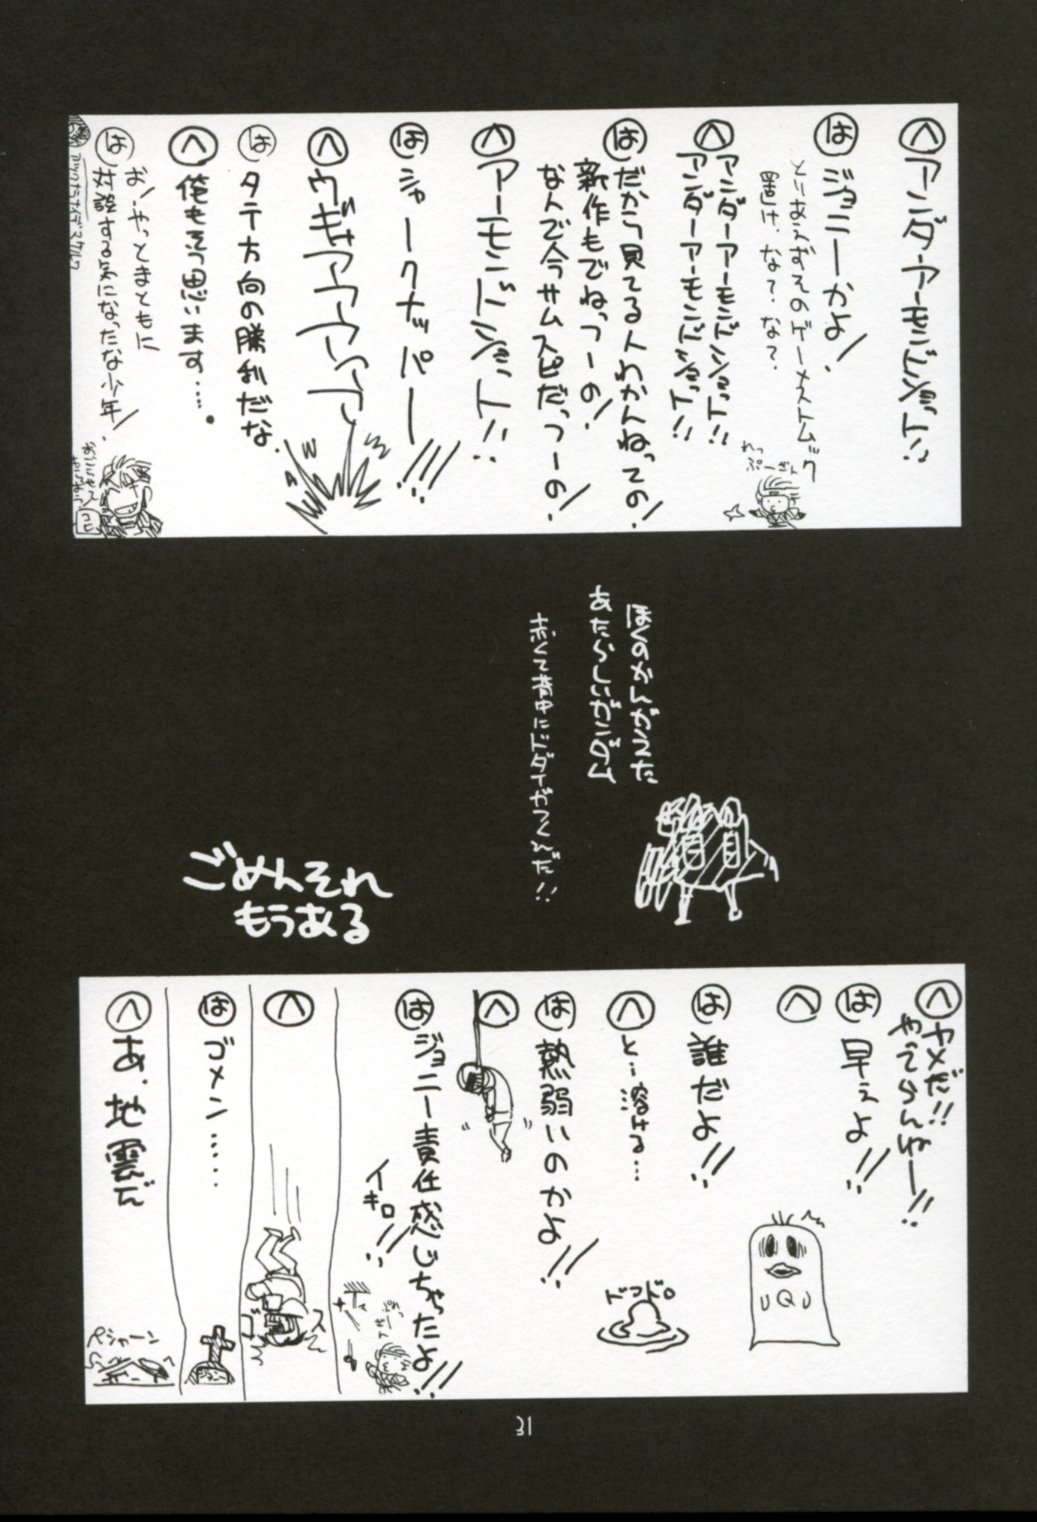 へ アンダーアーモンドショット!!
は ジョニーかよ!
とりあえずそのゲーメストムック
置け、な?、な?、
れっぷーけん
へ アンダーアーモンドショット!!
アンダーアーモンドショット!!
は だから見てる人わかんねっての!
新作もでねっつーの!
なんで今サムスピだっつーの!
へ アーモンドショット!!
は シャークナッパー!!!
へ ウギャアアアアア
は タテ方向の勝利だな
へ 俺もそう思います……。
は お!やっとまともに
対談する気になったな少年!
ぼくのかんがえた
あたらしいガンダム
赤くて背中にドダイがつくんだ!!
ごめんそれ
もうある
へ ヤメだ!!
やってらんねー!!
は 早えよ!!
へ
は 誰だよ!!
へ と…溶ける…
ドッドロ
は 熱弱いのかよ!!
へ
は ジョニー責任感じちゃったよ!!!
イキロ!!
へ
は ゴメン……
へ あ、地震だ
ペシャーン
31